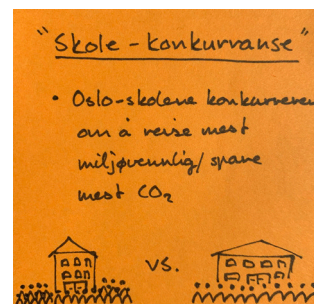 "Skole-konkurranse"
• Oslo-skolene konkurrerer
om å reise mest
miljøvennlig/spare
mest CO₂
vs.